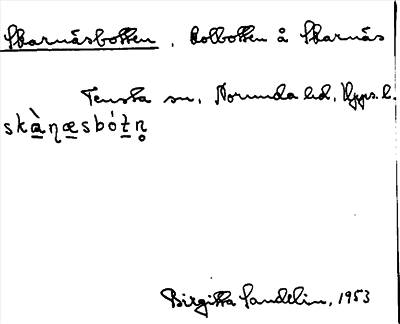 Skarnäsbotten, Kolbotten å Skarnäs
Tensta sn, Norunda hd, Upps. l.
skàṇæsbót̠n̥
Birgitta Sandelin, 1953